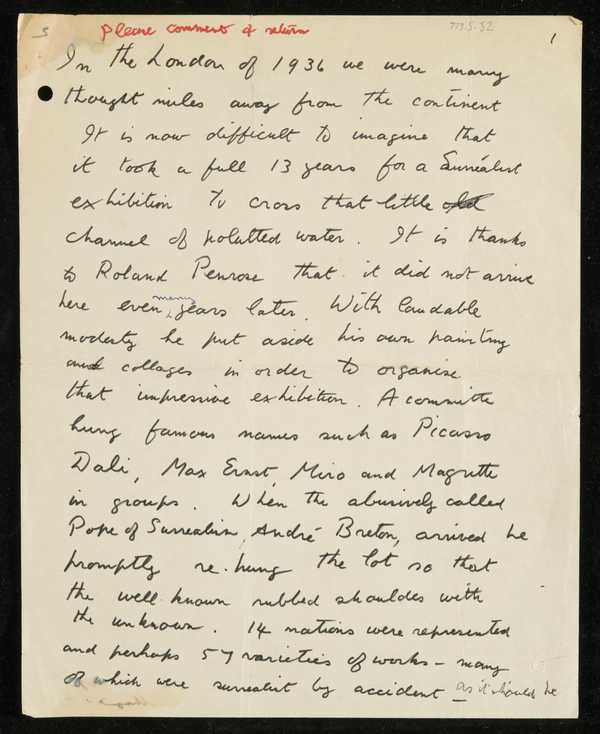 please comment & return
773.5.52
5
1
In the London of 1936 we were many
thought miles away from the continent
It is now difficult to imagine that
it took a full 13 years for a Surréalist
exhibition to cross that little old
channel of polutted water. It is thanks
to Roland Penrose that it did not arrive
here even many years later. With laudable
modesty he put aside his own painting
and collages in order to organise
that impressive exhibition. A committe
hung famous names such as Picasso
Dali, Max Ernst, Miro and Magritte
in groups. When the abusively called
Pope of Surrealism, André Breton, arrived he
promptly re-hung the lot so that
the well-known rubbed shouldes with
the unknown. 14 nations were represented
and perhaps 57 varieties of works - many
of which were surrealist by accident as it should be